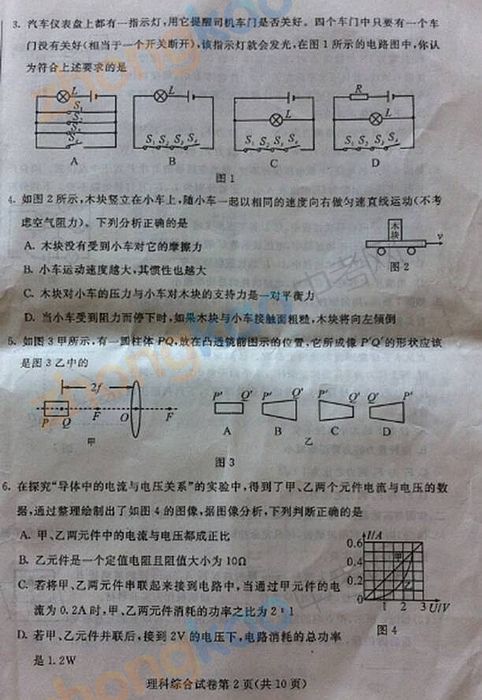 3. 汽车仪表盘上都有一指示灯,用它提醒司机车门是否关好。四个车门中只要有一个车
门没有关好(相当于一个开关断开),该指示灯就会发光,在图1所示的电路图中,你认
为符合上述要求的是
L L L R L
S₁ S₂ S₃ S₄
S₁ S₂ S₃ S₄
S₁ S₂ S₃ S₄
S₁ S₂ S₃ S₄
A B C D
图1
4. 如图2所示,木块竖立在小车上,随小车一起以相同的速度向右做匀速直线运动(不考
虑空气阻力)。下列分析正确的是
A. 木块没有受到小车对它的摩擦力
B. 小车运动速度越大,其惯性也越大
C. 木块对小车的压力与小车对木块的支持力是一对平衡力
D. 当小车受到阻力而停下时,如果木块与小车接触面粗糙,木块将向左倾倒
木块 v
图2
5. 如图3甲所示,有一圆柱体PQ,放在凸透镜前图示的位置,它所成像P'Q'的形状应该
是图3乙中的
2f
P Q F O F
甲
P' Q' P' Q' P' Q' Q' P'
A B C D
乙
图3
6. 在探究“导体中的电流与电压关系”的实验中,得到了甲、乙两个元件电流与电压的数
据,通过整理绘制出了如图4的图像,据图像分析,下列判断正确的是
A. 甲、乙两元件中的电流与电压都成正比
B. 乙元件是一个定值电阻且阻值大小为10Ω
C. 若将甲、乙两元件串联起来接到电路中,当通过甲元件的电
流为0.2A时,甲、乙两元件消耗的功率之比为2:1
D. 若甲、乙元件并联后,接到2V的电压下,电路消耗的总功率
是1.2W
I/A
0.6
0.4
0.2
0 1 2 3 U/V
甲
乙
图4
理科综合试卷第2页(共10页)